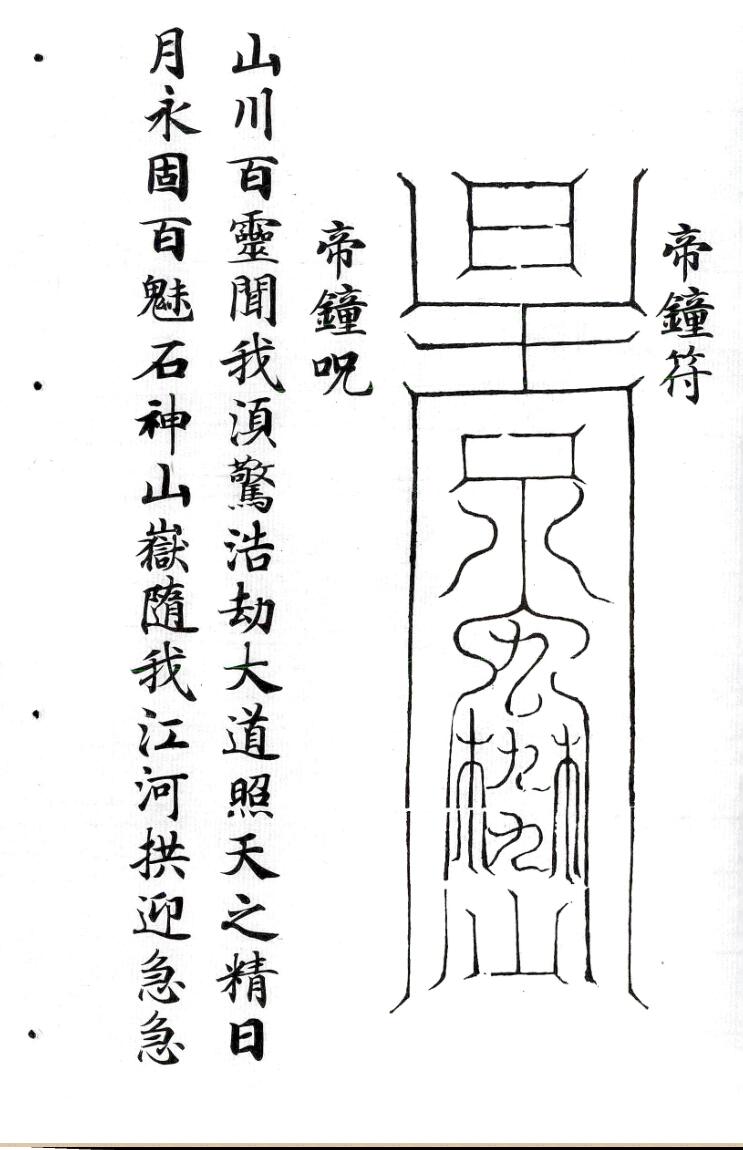 帝鐘符
帝鐘呪
山川百靈聞我湏驚浩劫大道照天之精日
月永固百魅石神山嶽隨我江河拱迎急急